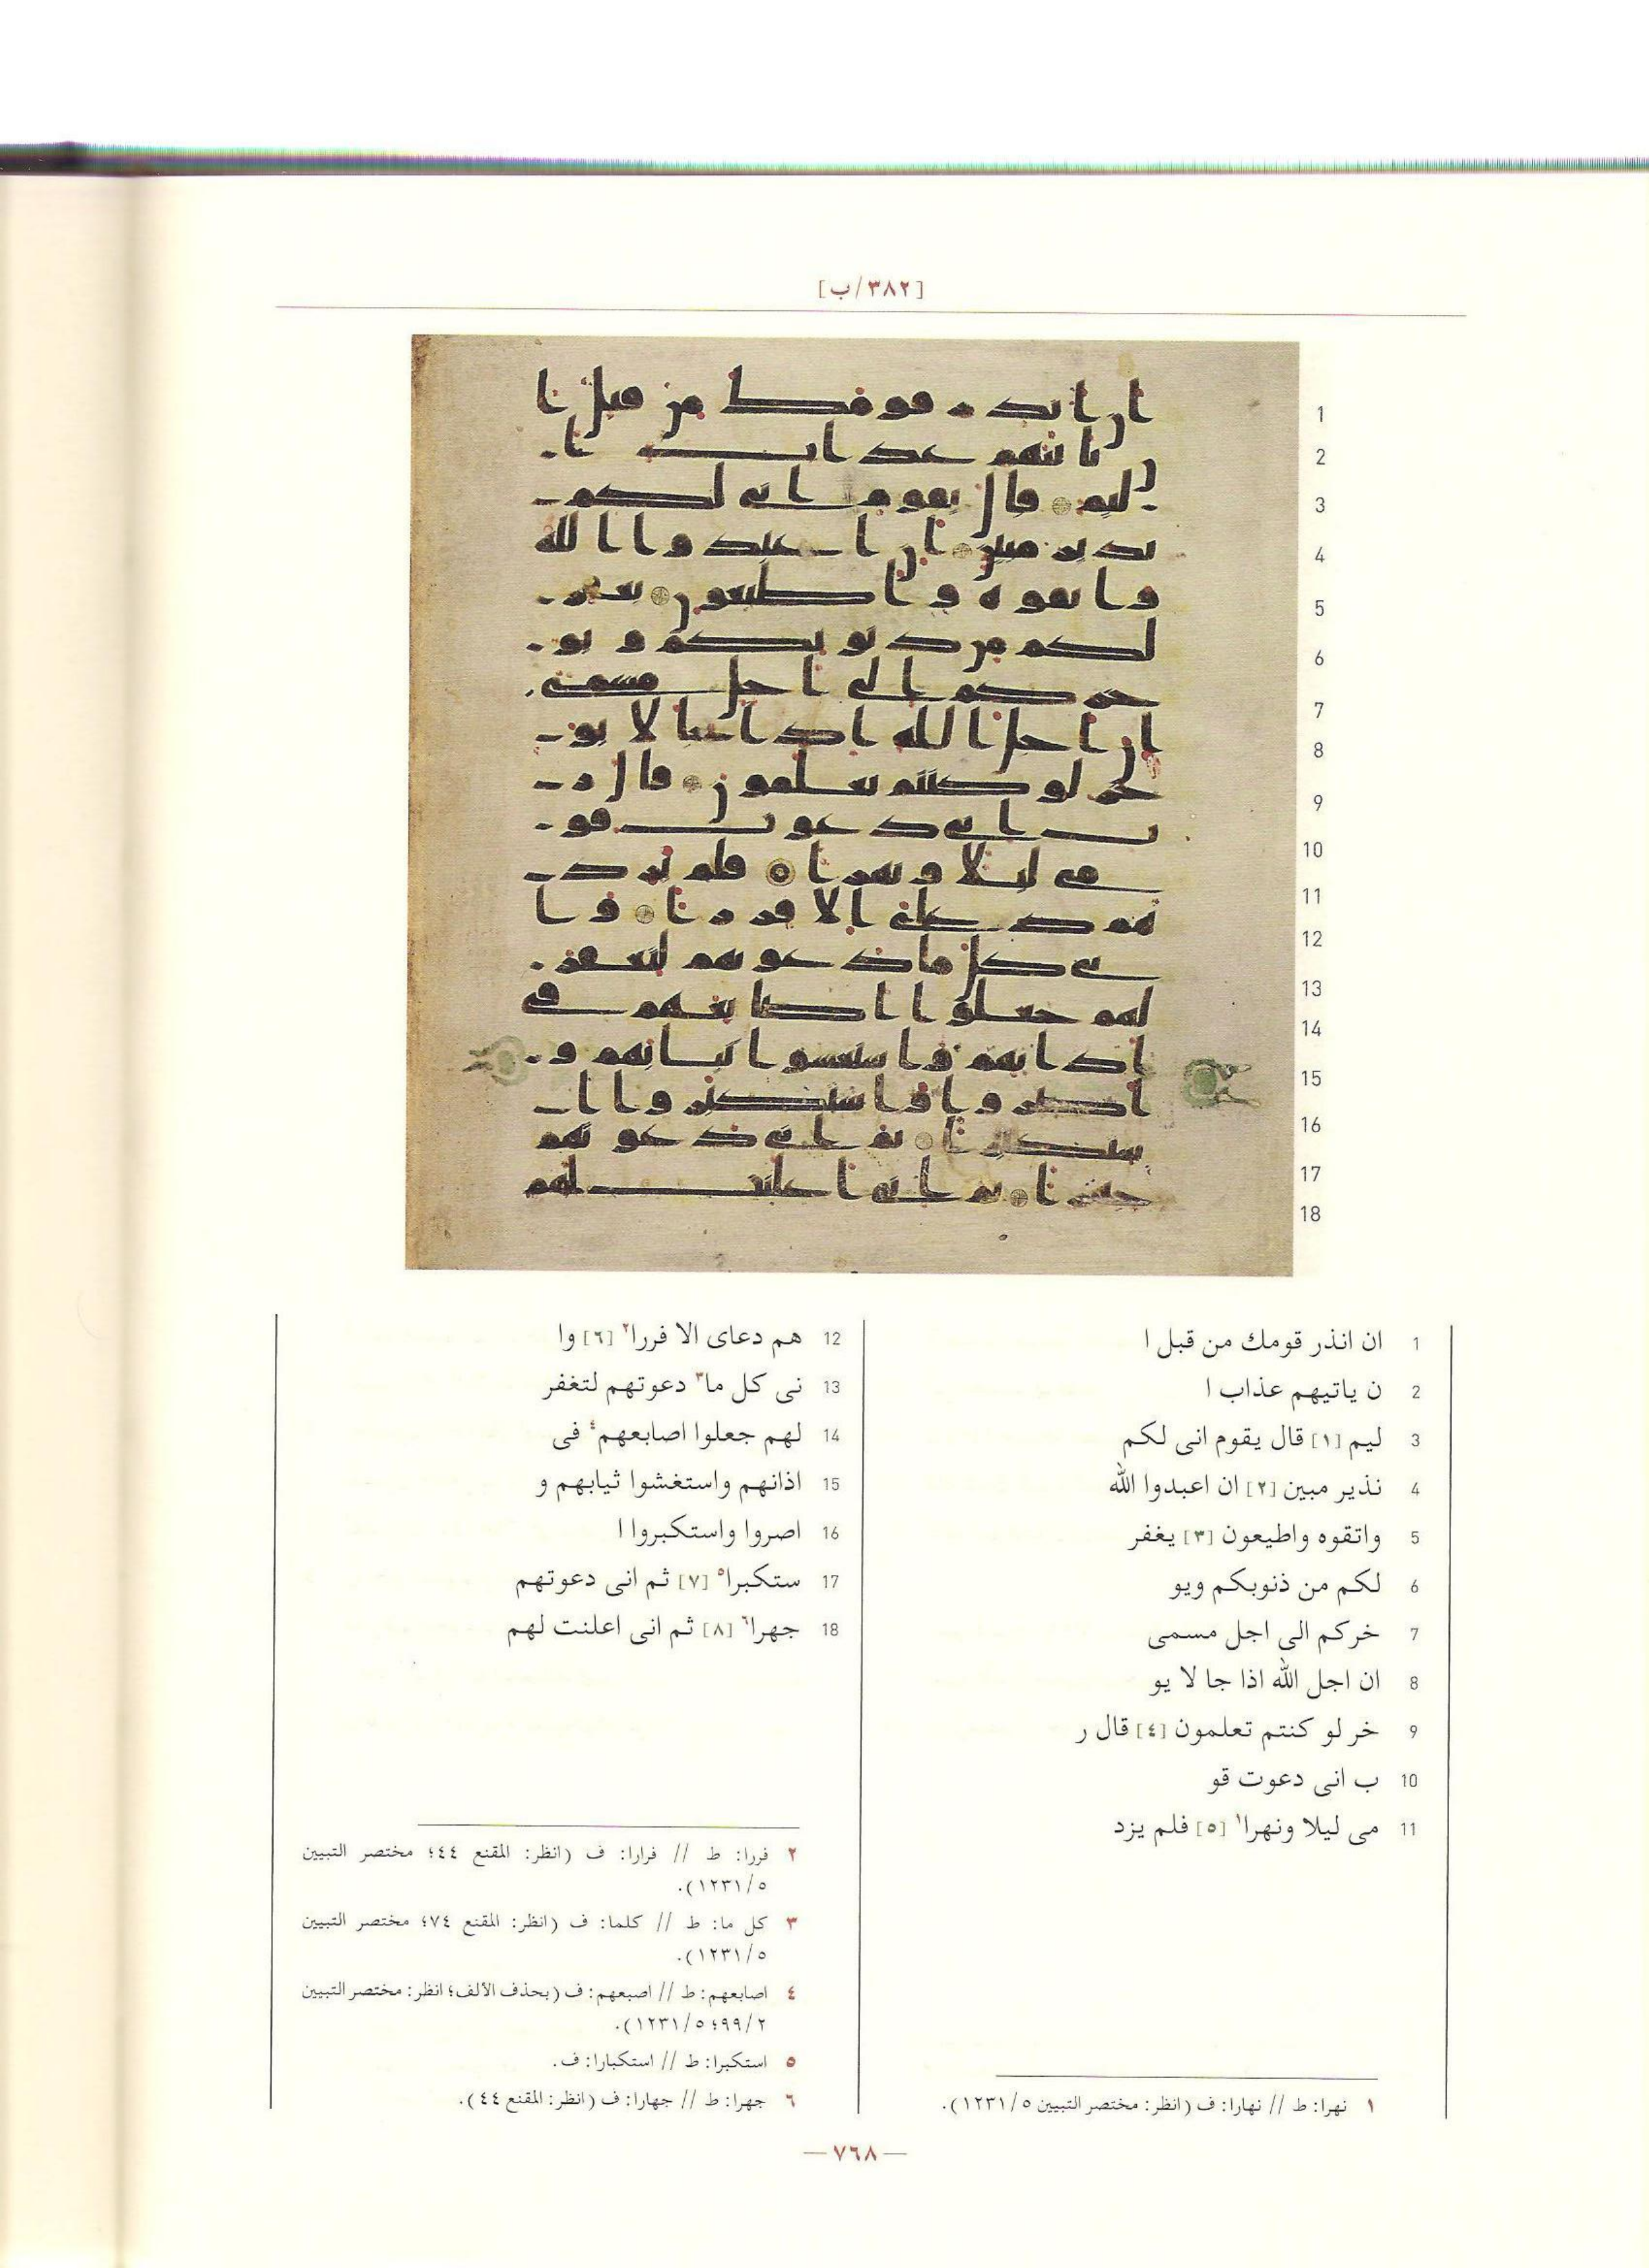 [٣٨٢/ب]
1 ان انذر قومك من قبل ا
2 ن ياتيهم عذاب ا
3 ليم [١] قال يقوم انى لكم
4 نذير مبين [٢] ان اعبدوا الله
5 واتقوه واطيعون [٣] يغفر
6 لكم من ذنوبكم ويو
7 خركم الى اجل مسمى
8 ان اجل الله اذا جا لا يو
9 خر لو كنتم تعلمون [٤] قال ر
10 ب انى دعوت قو
11 مى ليلا ونهرا١ [٥] فلم يزد
١ نهرا: ط // نهارا: ف (انظر: مختصر التبيين ١٢٣١/٥).
12 هم دعاى الا فررا٢ [٦] وا
13 نى كل ما٣ دعوتهم لتغفر
14 لهم جعلوا اصابعهم٤ فى
15 اذانهم واستغشوا ثيابهم و
16 اصروا واستكبروا ا
17 ستكبرا٥ [٧] ثم انى دعوتهم
18 جهرا٦ [٨] ثم انى اعلنت لهم
٢ فررا: ط // فرارا: ف (انظر: المقنع ٤٤؛ مختصر التبيين
١٢٣١/٥).
٣ كل ما: ط // كلما: ف (انظر: المقنع ٧٤؛ مختصر التبيين
١٢٣١/٥).
٤ اصابعهم: ط // اصبعهم: ف (بحذف الألف؛ انظر: مختصر التبيين
٩٩/٢؛ ١٢٣١/٥).
٥ استكبرا: ط // استكبارا: ف.
٦ جهرا: ط // جهارا: ف (انظر: المقنع ٤٤).
—٧٦٨—